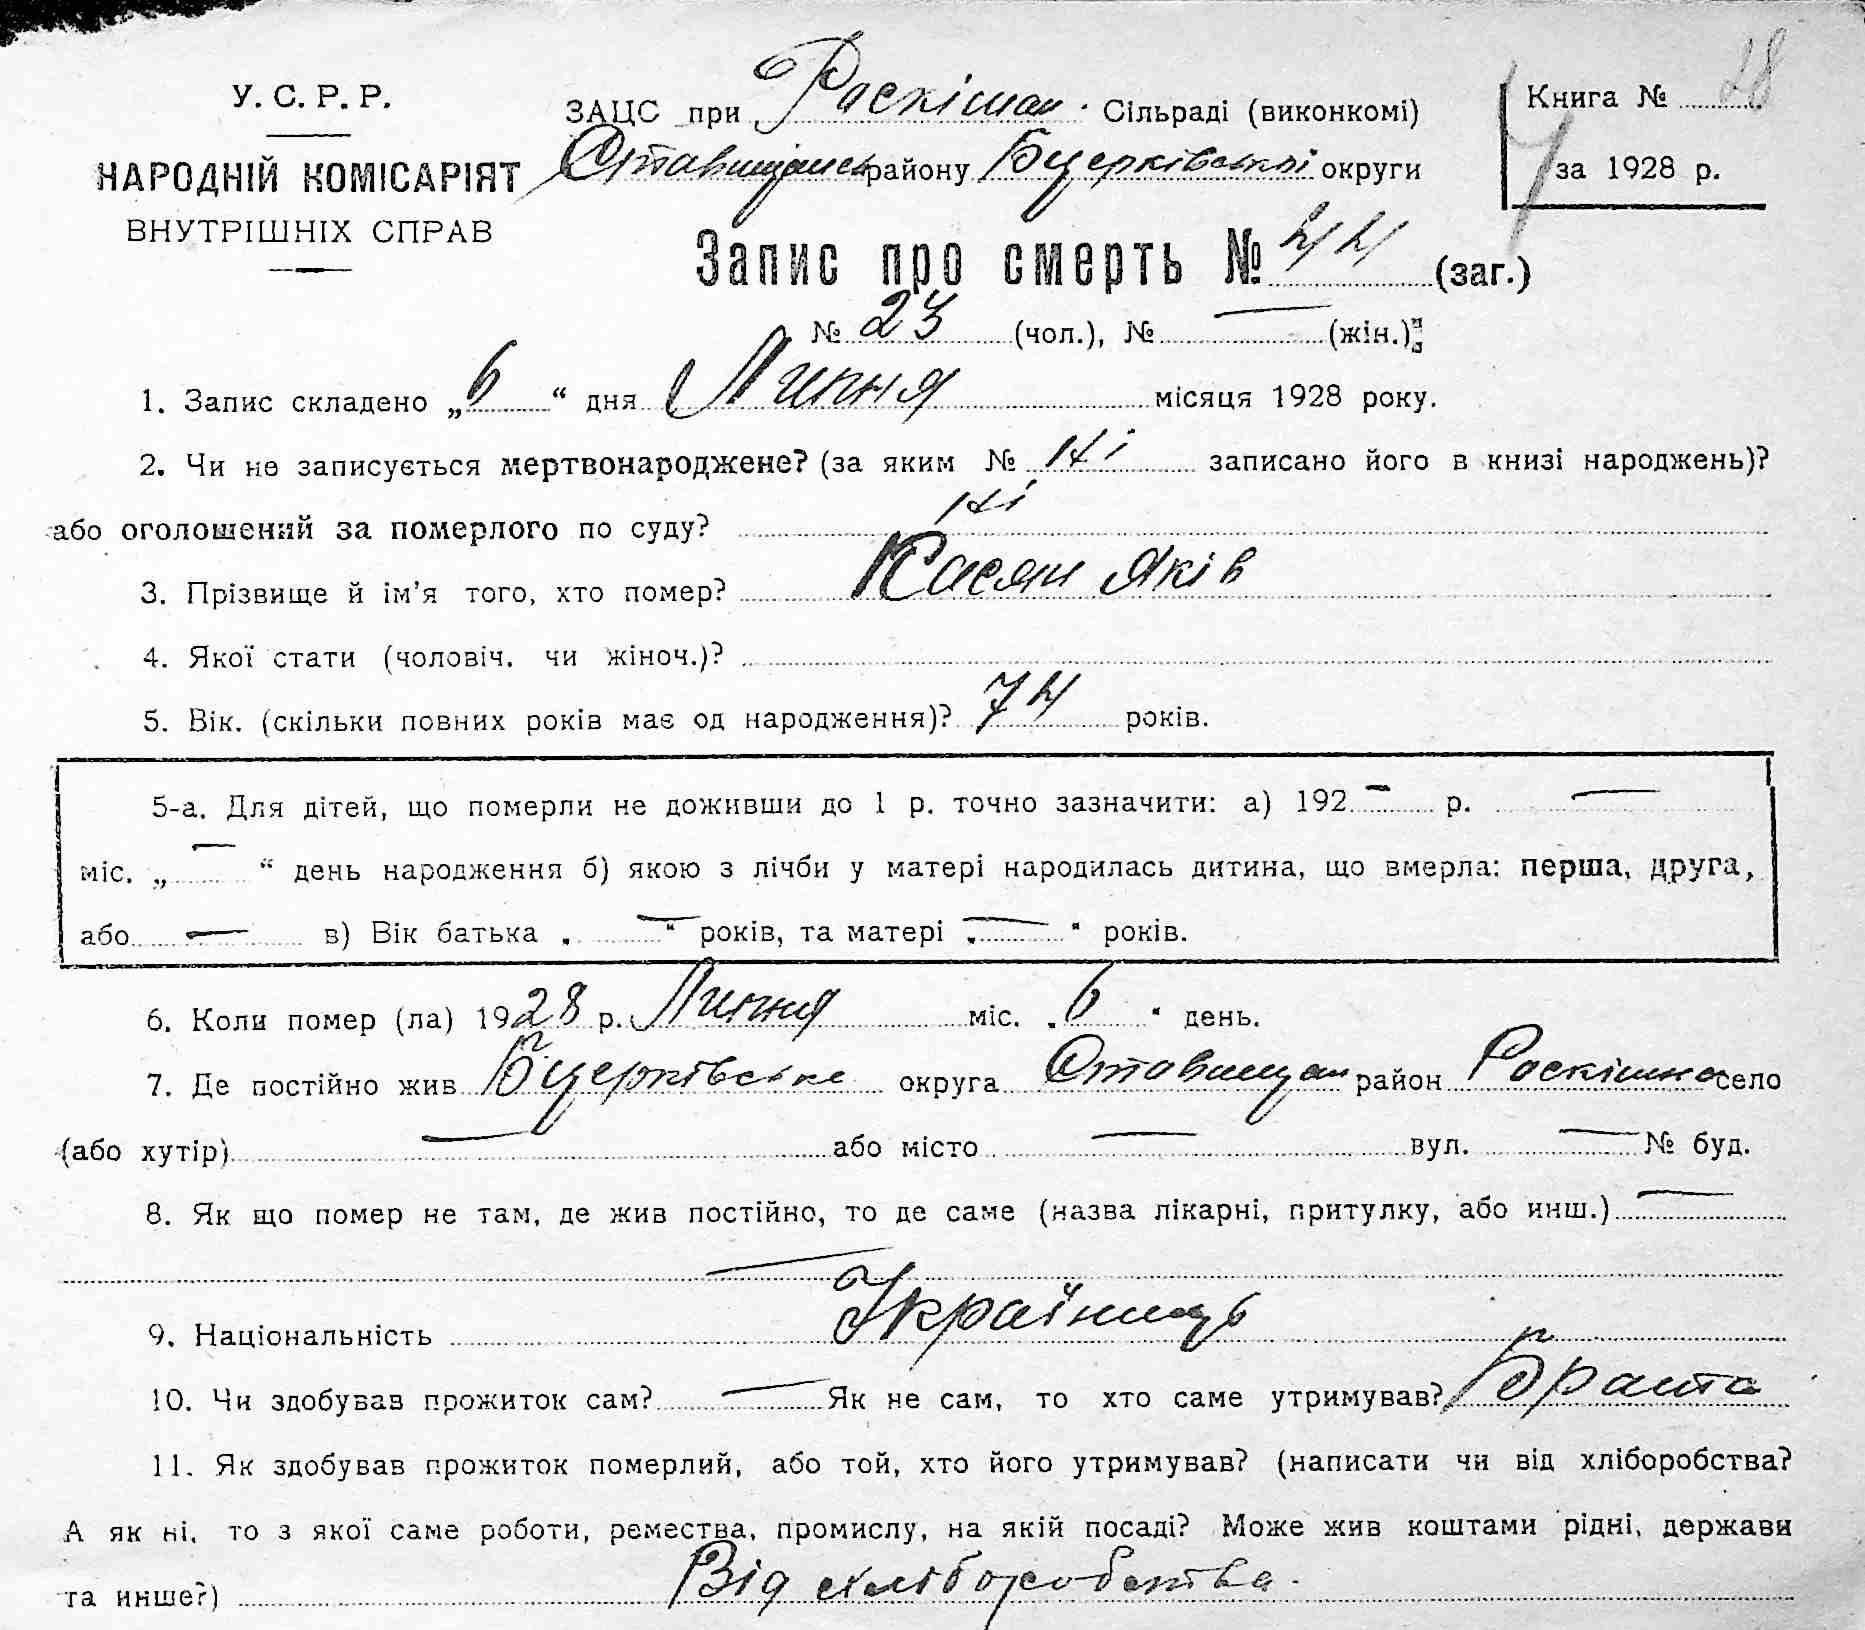 У. С. Р. Р.
НАРОДНІЙ КОМІСАРІЯТ
ВНУТРІШНІХ СПРАВ
ЗАЦС при Роскішан. Сільраді (виконкомі)
Ставищанськ району Бцерківської округи
Книга № 28
за 1928 р.
Запис про смерть № 44 (заг.)
№ 23 (чол.), № — (жін.)
1. Запис складено „6“ дня Липня місяця 1928 року.
2. Чи не записується мертвонароджене? (за яким № Ні записано його в книзі народжень)?
або оголошений за померлого по суду? Ні
3. Прізвище й ім’я того, хто помер? Касян Яків
4. Якої стати (чоловіч. чи жіноч.)?
5. Вік. (скільки повних років має од народження)? 74 років.
5-а. Для дітей, що померли не доживши до 1 р. точно зазначити: а) 192 — р. —
міс. „ — “ день народження б) якою з лічби у матері народилась дитина, що вмерла: перша, друга,
або — в) Вік батька „ — “ років, та матері „ — “ років.
6. Коли помер (ла) 1928 р. Липня міс. „6“ день.
7. Де постійно жив Бцерківське округа Ставищан район Роскішна село
(або хутір) — або місто — вул. — № буд.
8. Як що помер не там, де жив постійно, то де саме (назва лікарні, притулку, або инш.) —
—
9. Національність Українець
10. Чи здобував прожиток сам? — Як не сам, то хто саме утримував? Брата
11. Як здобував прожиток померлий, або той, хто його утримував? (написати чи від хліборобства?
А як ні, то з якої саме роботи, ремества, промислу, на якій посаді? Може жив коштами рідні, держави
та инше?) Від хліборобства.